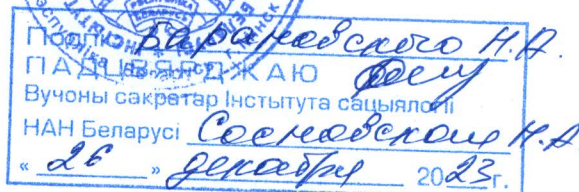 РЭСПУБЛІКА
БЕЛАРУСЬ
Подпіс Барановского Н.А.
ПАЦВЯРДЖАЮ
Вучоны сакратар Інстытута сацыялогіі
НАН Беларусі Сосновская Н.А.
« 26 » декабря 2023 г.